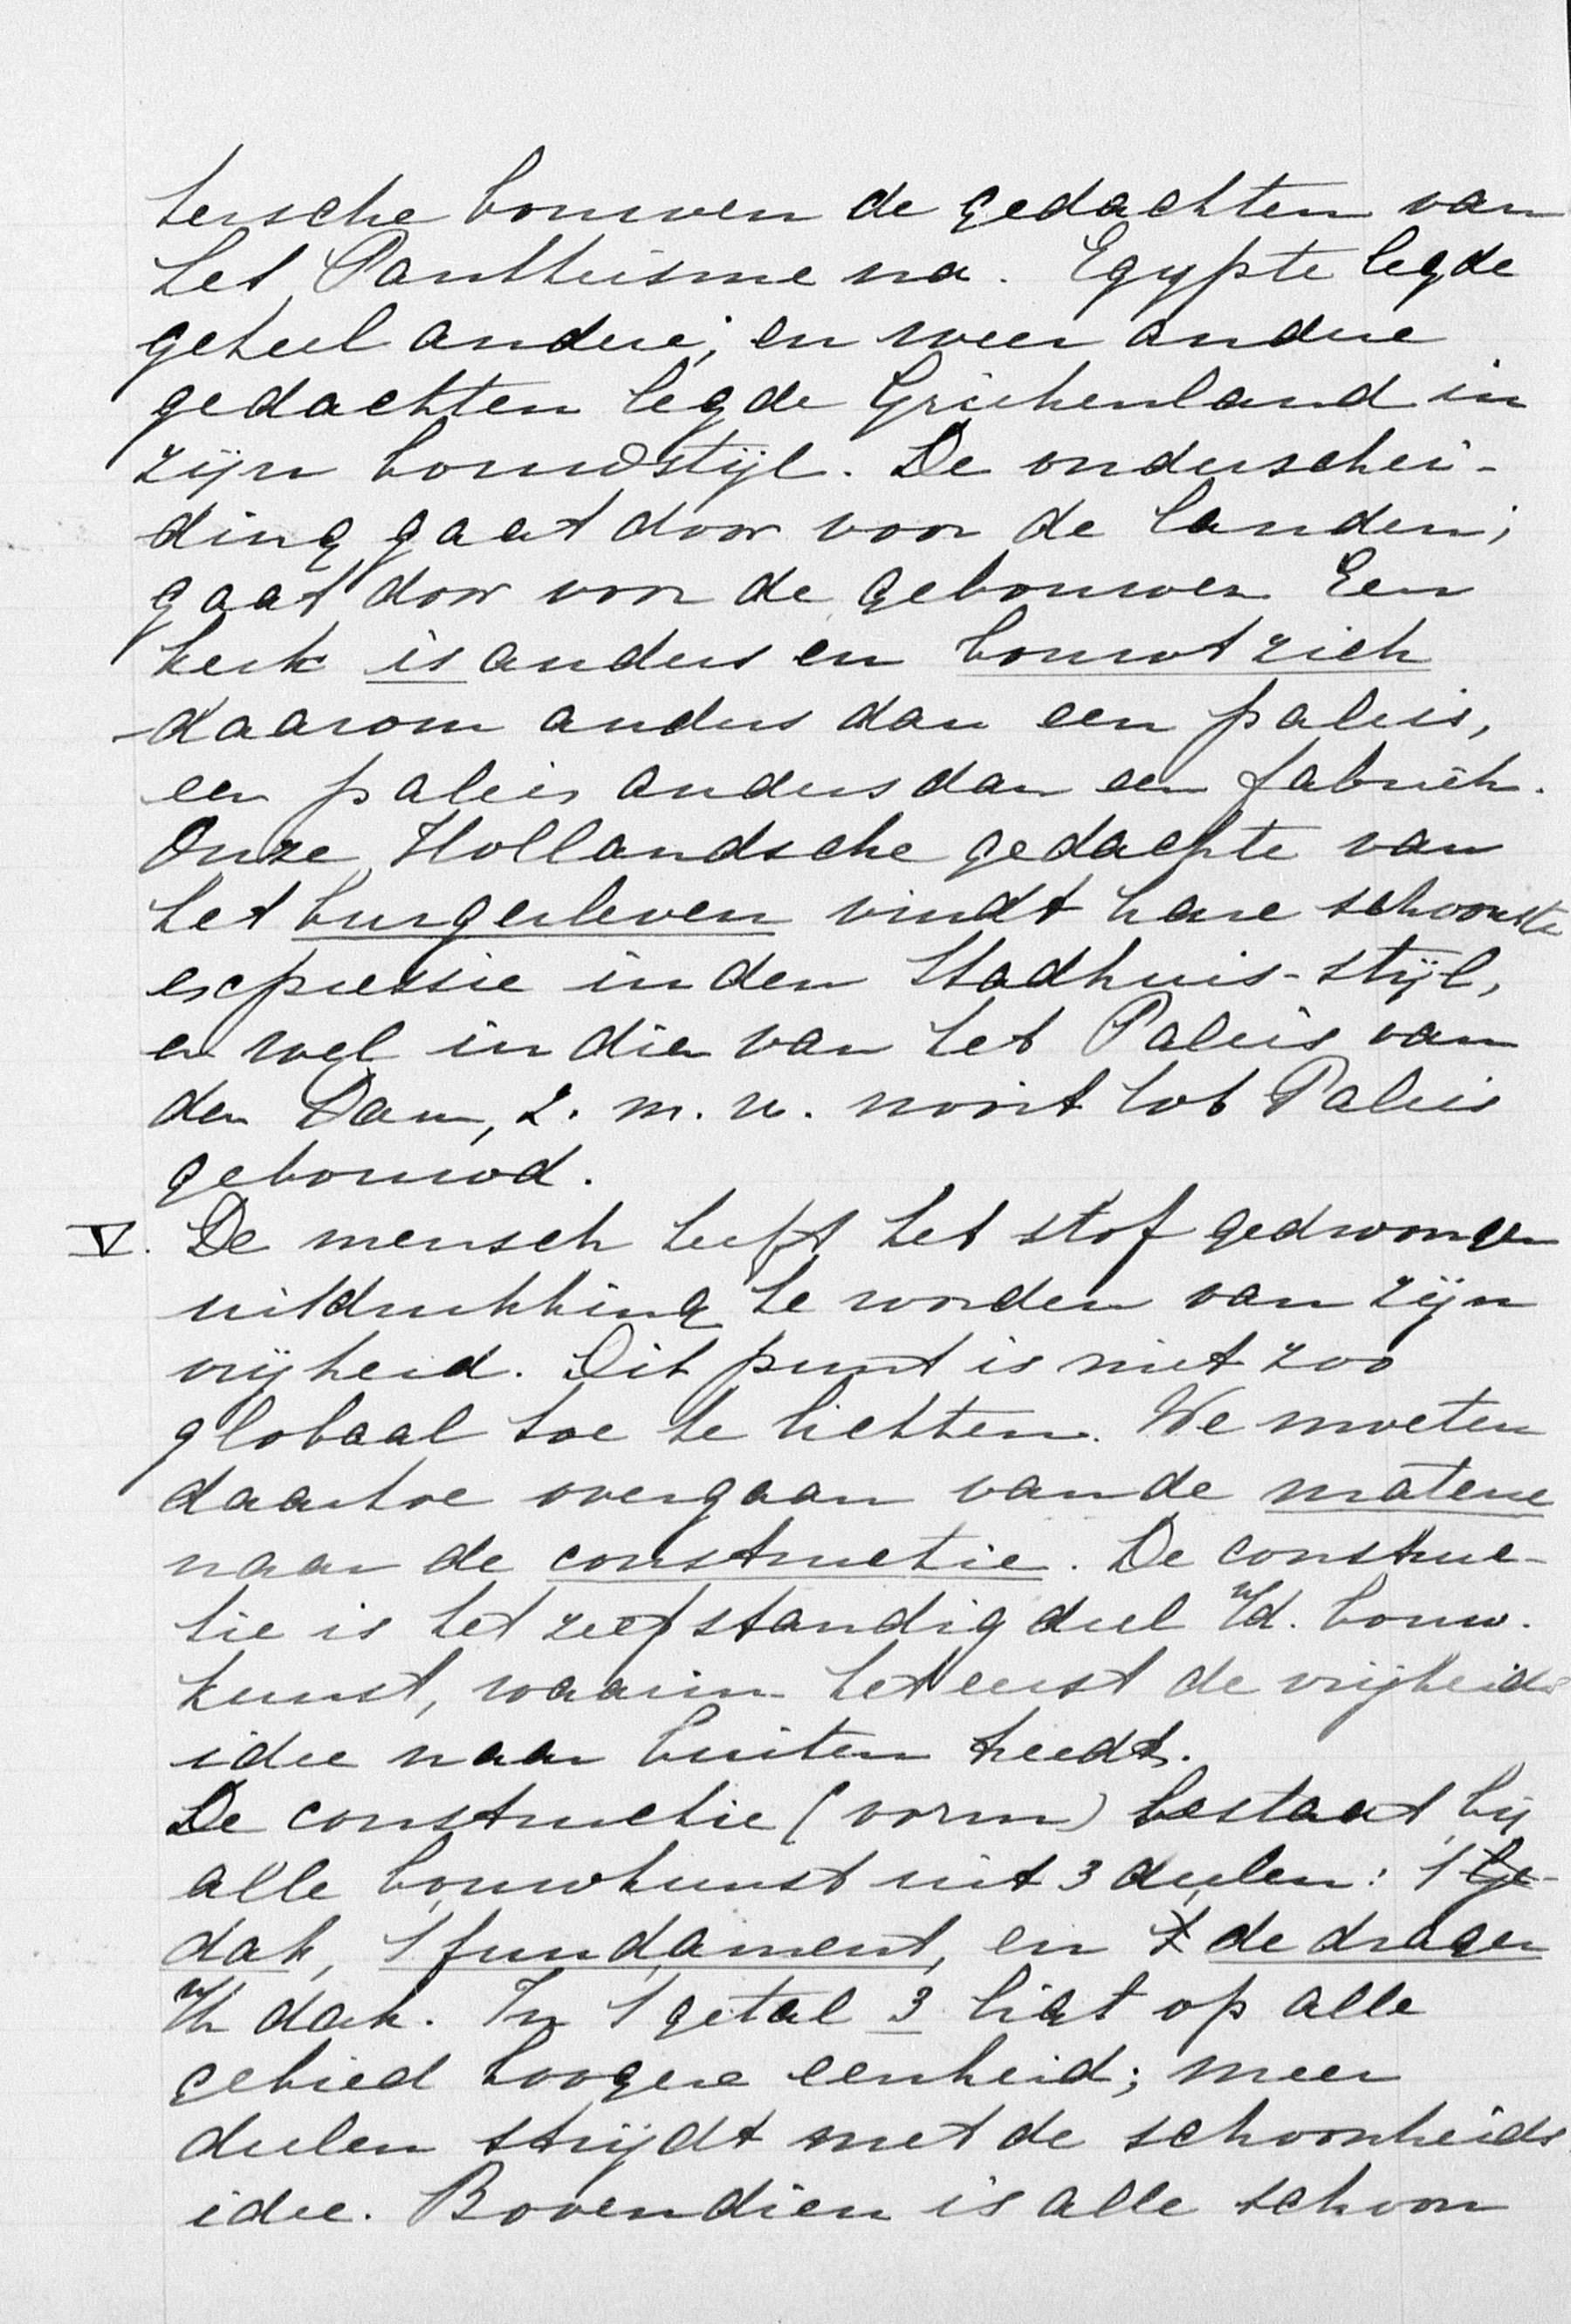 tersche bouwen de gedachten van
het Pantheisme na. Egypte legde
geheel andere; en weer andere
gedachten legde Griekenland in
zijn bouwstijl. De onderschei-
ding gaat door voor de landen;
gaat door voor de gebouwen Een
kerk is anders en bouwt zich
daarom anders dan een paleis,
een paleis anders dan een fabriek.
Onze Hollandsche gedachte van
het burgerleven vindt hare schoonste
expressie in den Stadhuis-stijl,
en wel in dien van het Paleis van
den Dam, L. m. n. nooit tot Paleis
gebouwd.
V. De mensch heeft het stof gedwongen
uitdrukking te worden van zijn
vrijheid. Dit punt is niet zoo
globaal toe te lichten. We moeten
daartoe overgaan van de materie
naar de constructie. De construc-
tie is het zelfstandig deel v/d. bouw-
kunst, waarin het eerst de vrijheids
idee naar buiten treedt.
De constructie (vorm) bestaat bij
alle bouwkunst uit 3 deelen: 1 ge-
dak, 1 fundament, en 1 de drager
v/h dak. In 't getal 3 ligt op alle
gebied hoogere eenheid; meer
deelen strijdt met de schoonheids
idee. Bovendien is alle schoon